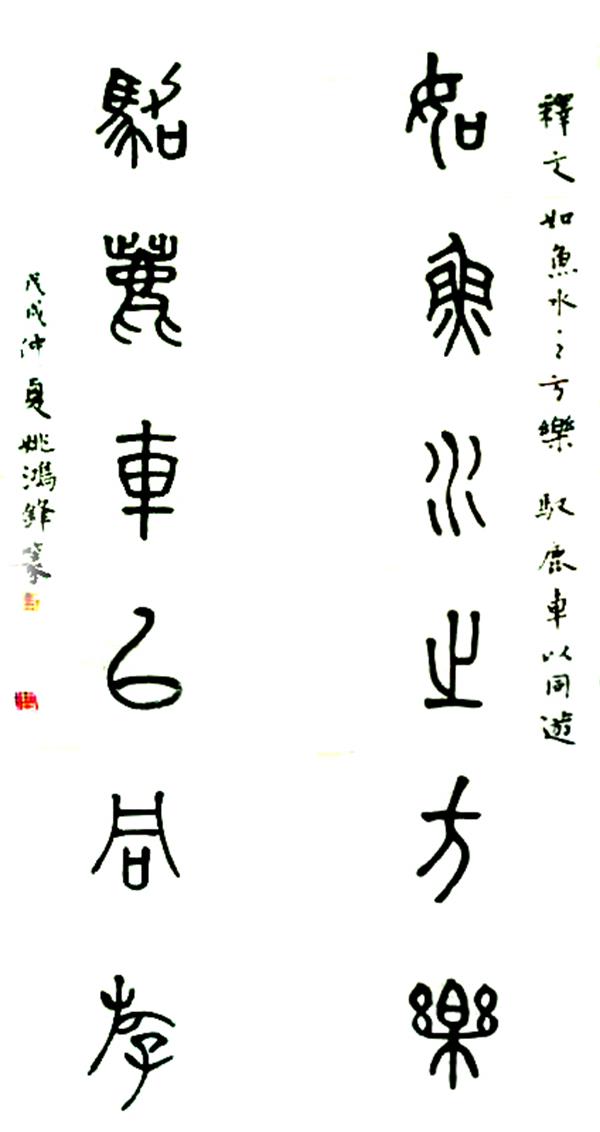 釋文 如魚水之方樂 馭鹿車以同遊
如魚水之方樂
馭鹿車以同游
戊戌仲夏姚鴻鋒篆